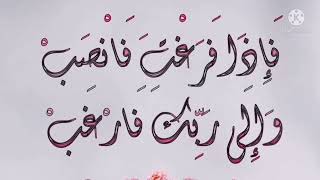 فَإِذَا فَرَغْتَ فَانْصَبْ
وَإِلَى رَبِّكَ فَارْغَبْ